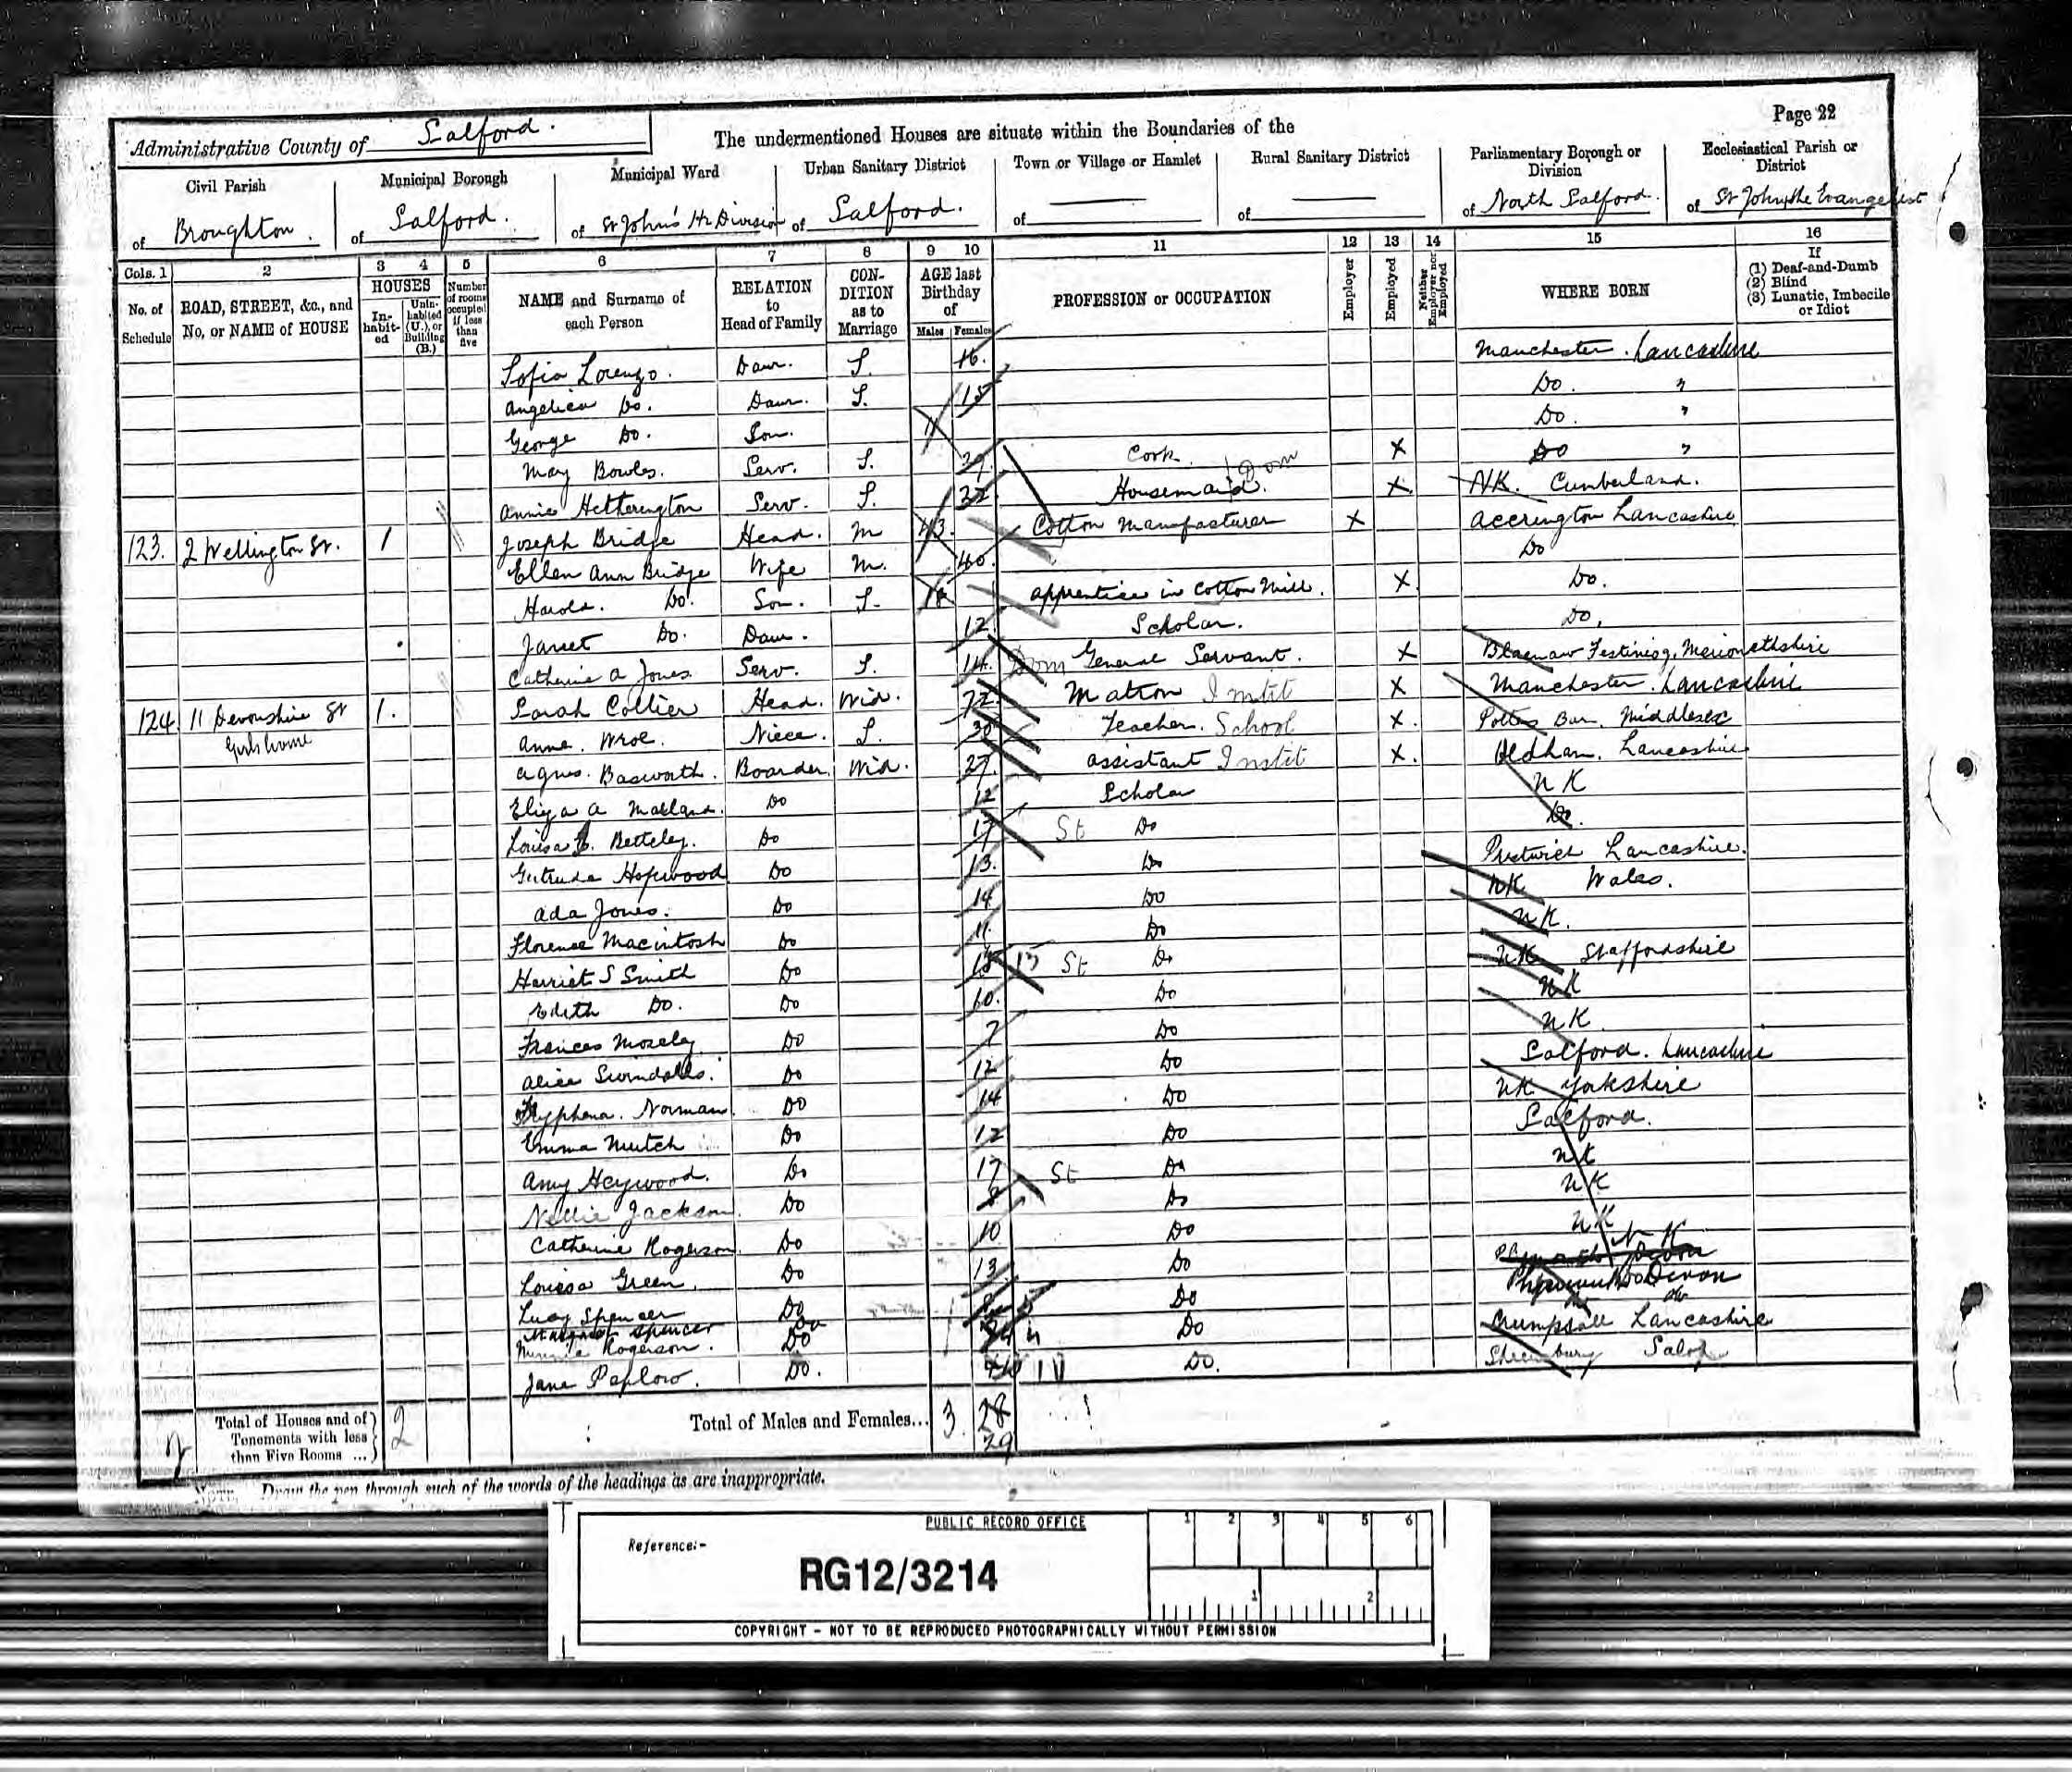 Page 22
Administrative County of Salford.
The undermentioned Houses are situate within the Boundaries of the
Civil Parish of Broughton.
Municipal Borough of Salford.
Municipal Ward of St John's
Urban Sanitary District of Salford.
Town or Village or Hamlet of
Rural Sanitary District of
Parliamentary Borough or Division of North Salford.
Ecclesiastical Parish or District of St John the Evangelist
Cols. 1 2 3 4 5 6 7 8 9 10 11 12 13 14 15 16
No. of Schedule
ROAD, STREET, &c., and No. or NAME of HOUSE
HOUSES
In-habit-ed
Unin-habited (U.), or Building (B.)
Number of rooms occupied if less than five
NAME and Surname of each Person
RELATION to Head of Family
CON-DITION as to Marriage
AGE last Birthday of
Males Females
PROFESSION or OCCUPATION
Employer
Employed
Neither Employer nor Employed
WHERE BORN
If
(1) Deaf-and-Dumb
(2) Blind
(3) Lunatic, Imbecile or Idiot
Sofia Lorenzo. Daur. S. 16. Manchester. Lancashire
Angelica Do. Daur. S. 15 Do. "
George Do. Son. 11 Do. "
May Bowles. Serv. S. 29. Cook Dom X Do "
Annie Hetherington Serv. S. 32 Housemaid. X NK. Cumberland.
123. 2 Wellington St. 1 Joseph Bridge Head. M 43. Cotton Manufacturer X Accrington Lancashire
Ellen Ann Bridge Wife M. 40. Do
Harold. Do. Son. S. 18 Apprentice in Cotton Mill. X Do.
Janet Do. Daur. 12. Scholar. Do.
Catherine A Jones Serv. S. 14. Dom General Servant. X Blaenaw Festiniog, Merionethshire
124. 11 Devonshire St 1. Sarah Collier Head. Wid. 72. Matron Instit X Manchester. Lancashire
Girls home Anne. Wroe. Niece. S. 30 Teacher. School X. Potters Bar. Middlesex
Agnes. Basworth. Boarder. Wid. 27. Assistant Instit X. Oldham. Lancashire
Eliza A Do 12 Scholar NK
Louisa Betteley. Do 17 St Do Do.
Gertrude Hopwood Do 13. Do Prestwich Lancashire.
Ada Jones. Do 14 Do NK Wales.
Florence Macintosh Do 11. Do NK.
Harriet S Smith Do 15 St Do NK Staffordshire
Edith Do. Do 10. Do NK
Frances Mozeley Do 7 Do NK.
Alice Swindells. Do 12 Do Salford. Lancashire
Tryphena. Norman. Do 14 Do NK Yorkshire
Emma Mutch Do 12 Do Salford.
Amy Heywood. Do 17 St Do NK
Nellie Jackson. Do 8 Do NK
Catherine Rogerson. Do 10 Do NK
Louisa Green. Do 13 Do NK
Lucy Spencer Do Do Plymouth Devon
Margaret Spencer Do Do
Minnie Rogerson. Do Do Crumpsall Lancashire
Jane Paplow. Do. 11 Do. Shrewsbury Salop
Total of Houses and of Tenements with less than Five Rooms ... 2
Total of Males and Females... 3. 28
29
NOTE. Draw the pen through such of the words of the headings as are inappropriate.
PUBLIC RECORD OFFICE
1 2 3 4 5 6
Reference:-
RG12/3214
1 2
COPYRIGHT - NOT TO BE REPRODUCED PHOTOGRAPHICALLY WITHOUT PERMISSION